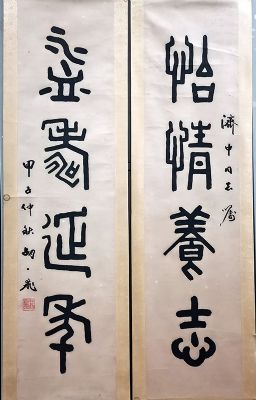 怡情養志
濟中同志屬
益壽延年
甲子仲秋